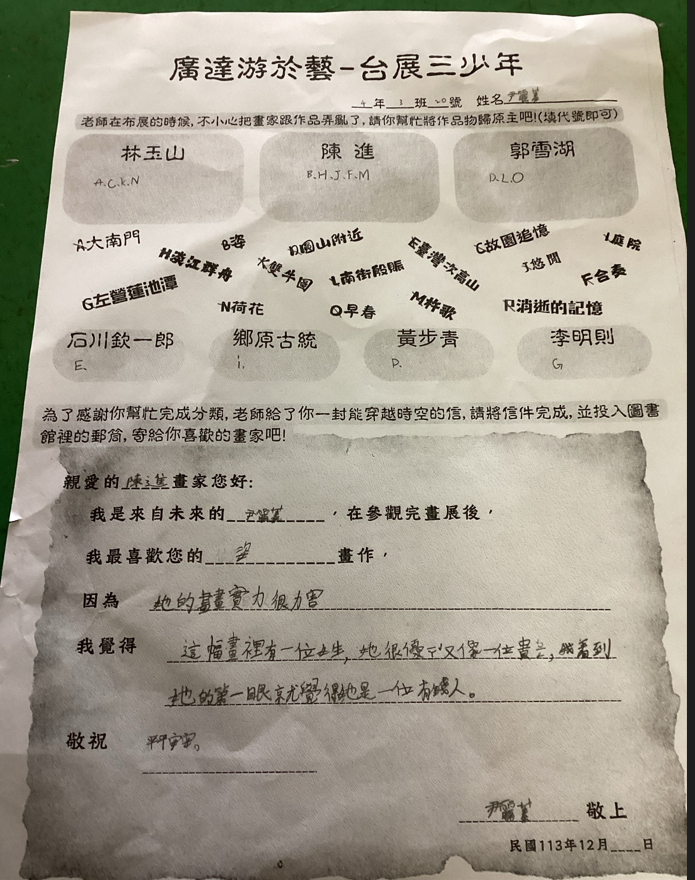 廣達游於藝-台展三少年
4年3班20號 姓名
老師在布展的時候,不小心把畫家跟作品弄亂了,請你幫忙將作品物歸原主吧!(填代號即可)
林玉山 陳進 郭雪湖
A.C.K.N B.H.J.F.M D.L.O
A大南門 B姿 D圓山附近 E臺灣次高山 C故園追憶 I庭院
H淡江群舟 K雙牛圖 L南街殷賑 J悠閒 F合奏
G左營蓮池潭 N荷花 Q早春 M杵歌 R消逝的記憶
石川欽一郎 鄉原古統 黃步青 李明則
E. i. P. G
為了感謝你幫忙完成分類,老師給了你一封能穿越時空的信,請將信件完成,並投入圖書
館裡的郵筒,寄給你喜歡的畫家吧!
親愛的陳進畫家您好:
我是來自未來的,在參觀完畫展後,
我最喜歡您的姿畫作,
因為 她的畫畫實力很力害
我覺得 這幅畫裡有一位女生,她很優又像一位貴,看到
她的第一眼就覺得她是一位有錢人。
敬祝 平安
敬上
民國113年12月____日